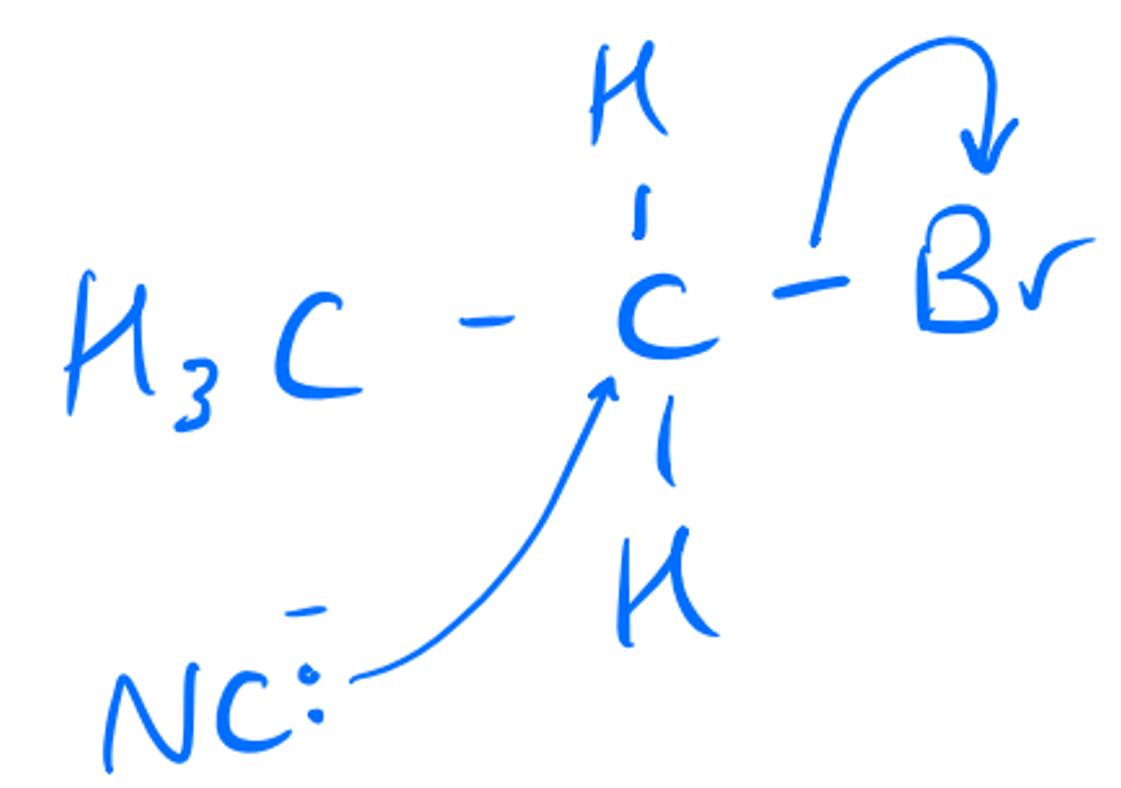 H
H₃C - C - Br
H
NC:⁻